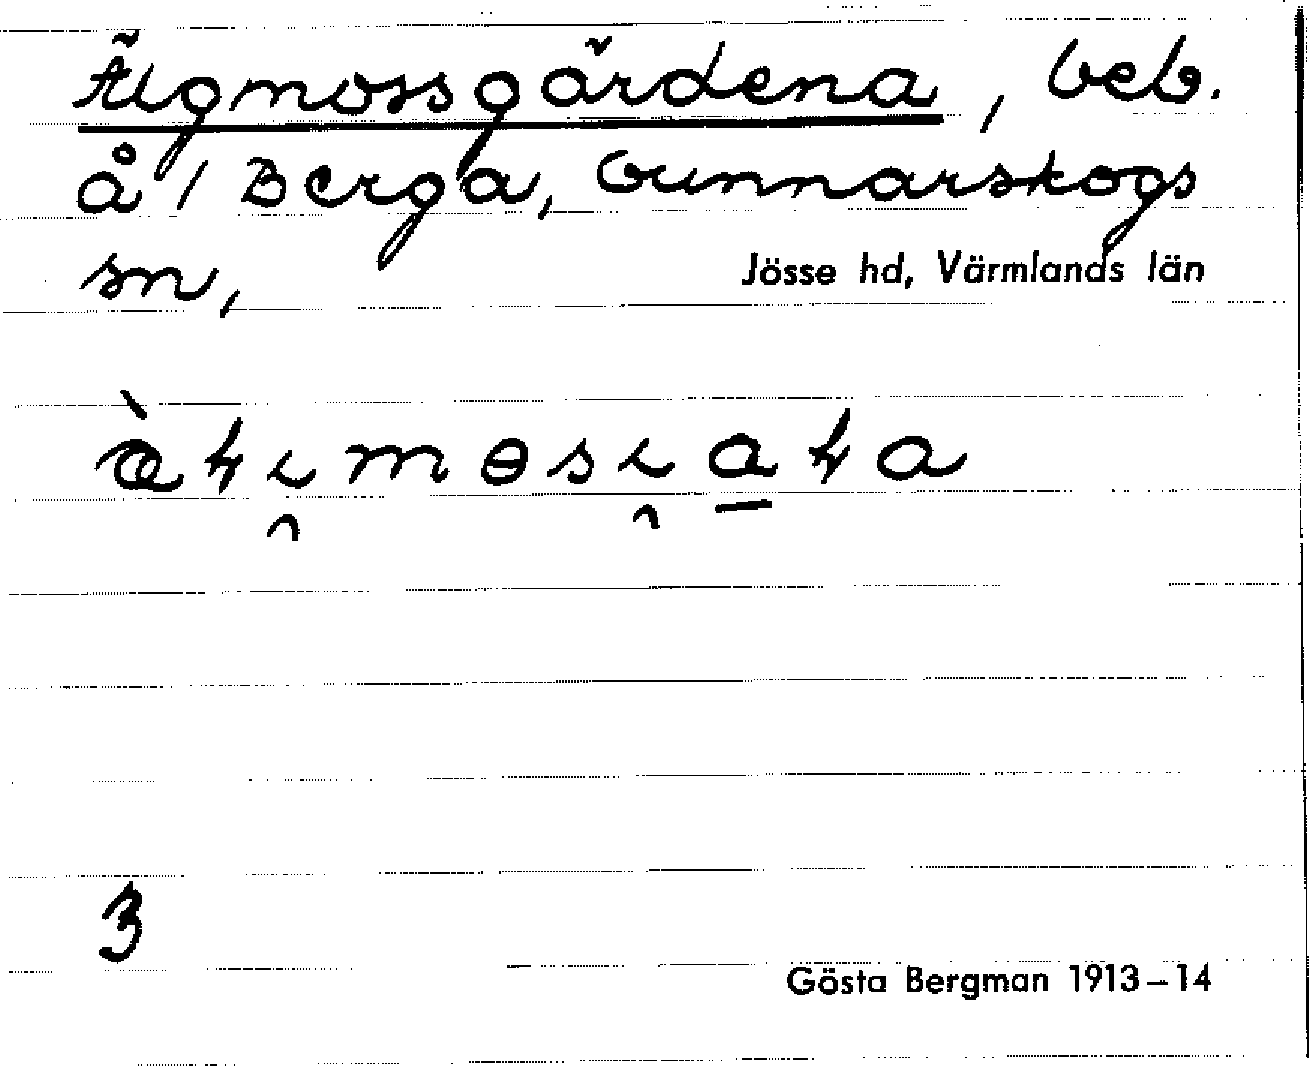 Älgmossgårdena, beb.
å / Berga, Gunnarskogs
sn, Jösse hd, Värmlands län
3
Gösta Bergman 1913–14